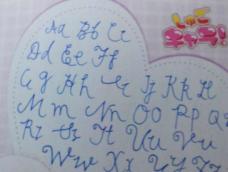 Aa Bb Cc
Dd Ee Ff
Gg Hh Ii Jj Kk Ll
Mm Nn Oo Pp Qq
Rr Ss Tt Uu Vv
Ww Xx Yy Zz